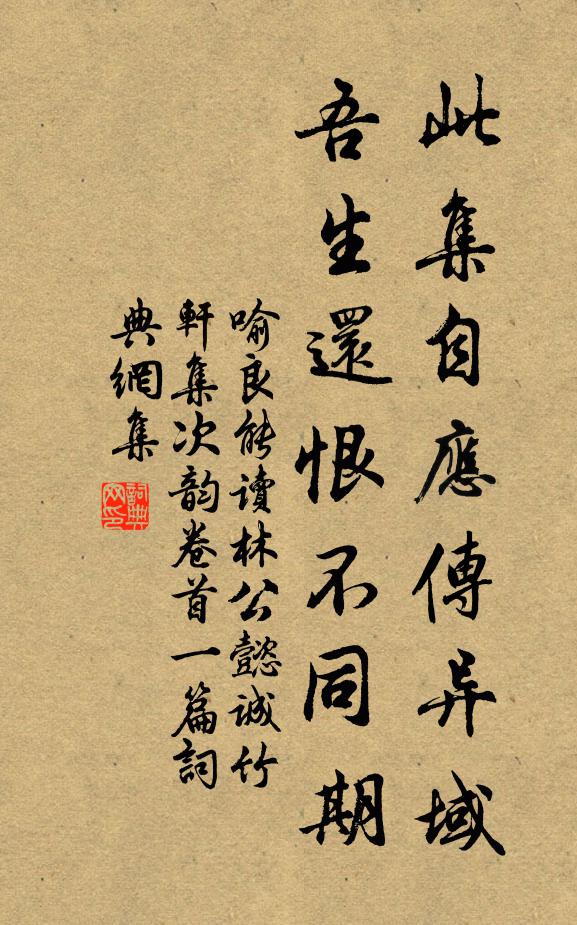 此集自應傳异域
吾生還恨不同期
喻良能讀林公懿誠竹
軒集次韵卷首一篇詞
典網集
詞典网印